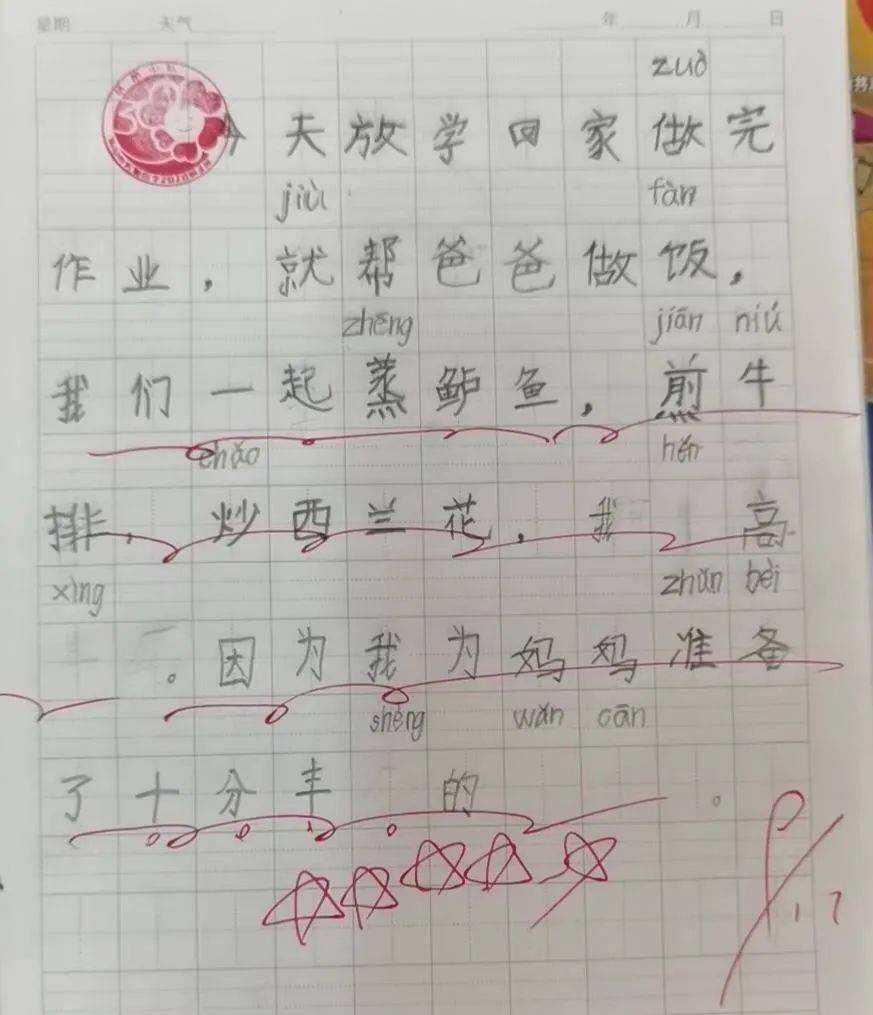 星期 天气 年 月 日
zuò
今天放学回家做完
jiù fàn
作业，就帮爸爸做饭，
zhēng jiān niú
我们一起蒸鲈鱼，煎牛
chǎo hěn
排，炒西兰花，我 高
xìng zhǔn bèi
。因为我为妈妈准备
shèng wǎn cān
了十分丰 的 。